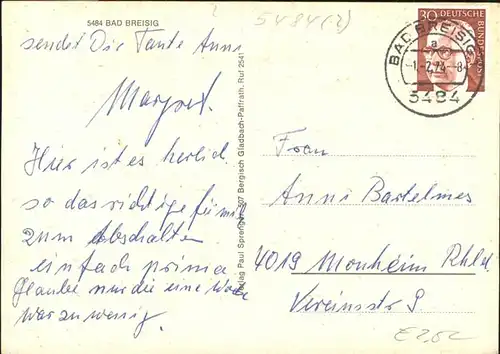 5484 BAD BREISIG
5484 (2)
sendet Die Tante Anni
Margret.
Hier ist es herlich
so das richtige für mich
zum Abschalten
einfach prima
Glaube nur die eine Woche
war zu wenig.
Verlag Paul Sprenger, 507 Bergisch Gladbach-Paffrath, Ruf 2541
30 DEUTSCHE BUNDESPOST
BAD BREISIG
a
-1.-7.74.-8
5484
Frau
Anni Bartelmes
4019 Monheim Rhld.
Vereinsstr 9.